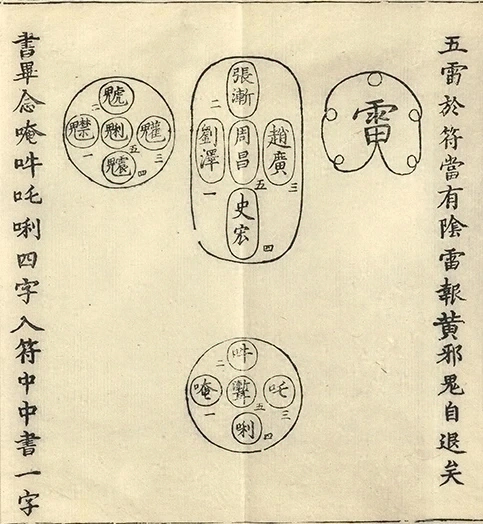 五雷於符當有陰雷報黄邪鬼自退矣
雷
張漸
二
趙廣
三
周昌
五
劉澤
一
史宏
四
二
一
五
三
四
吽
二
吒
三
五
唵
一
唎
四
書畢念唵吽吒唎四字入符中中書一字